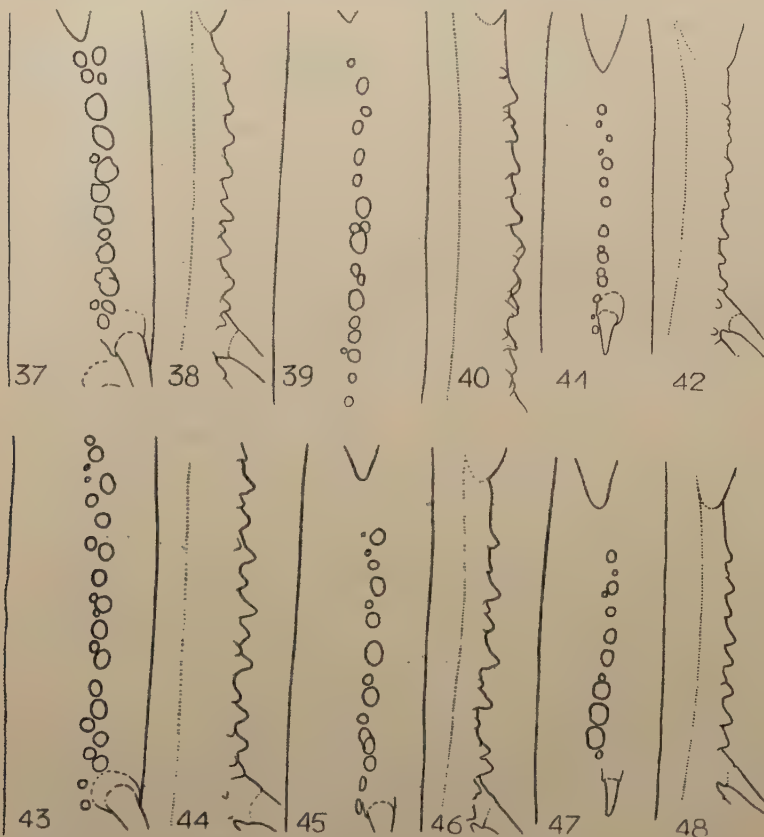 37 38 39 40 41 42
43 44 45 46 47 48